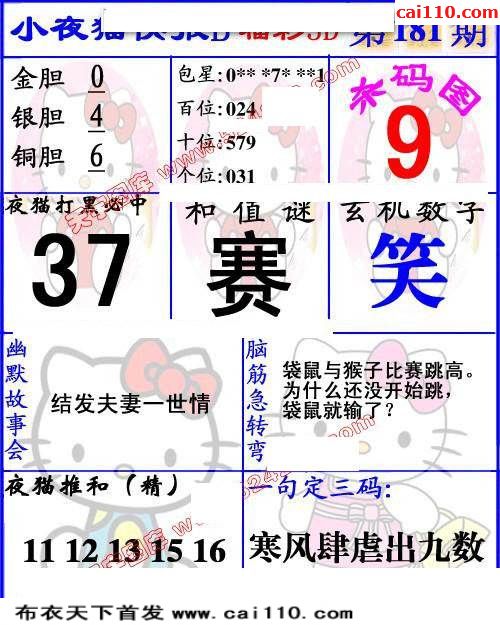 cai110.com
小夜猫快报D 福彩3D 第181期
金胆 0
银胆 4
铜胆 6
包星: 0** *7* **1
百位: 024
十位: 579
个位: 031
杀码图
9
夜猫打黑必中
37
和值谜
赛
玄机数字
笑
幽默故事会
结发夫妻一世情
脑筋急转弯
袋鼠与猴子比赛跳高。
为什么还没开始跳,
袋鼠就输了?
夜猫推和（精）
11 12 13 15 16
一句定三码:
寒风肆虐出九数
布衣天下首发 www.cai110.com